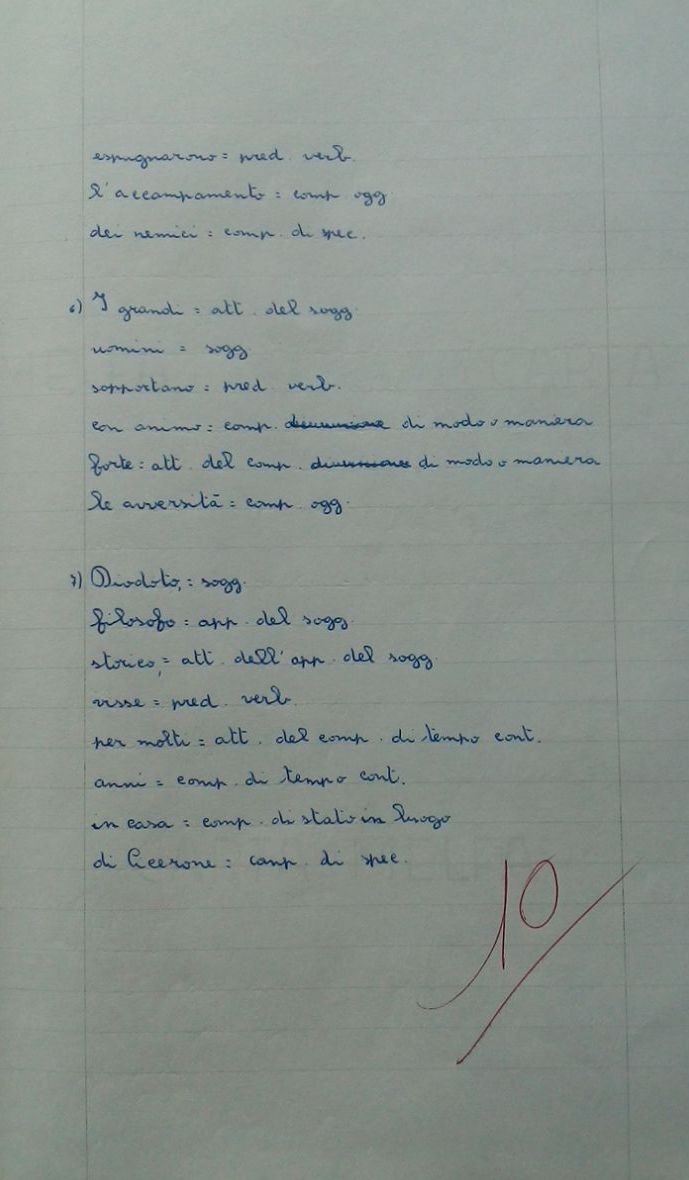 espugnarono = pred. verb.
l'accampamento = comp ogg.
dei nemici = comp. di spec.
6) I grandi = att. del sogg.
uomini = sogg
sopportano = pred verb.
con animo = comp. di modo o maniera
forte = att. del comp. di modo o maniera
le avversità = comp. ogg.
7) Diodoto, = sogg.
filosofo = app. del sogg.
storico, = att. dell'app. del sogg.
visse = pred. verb.
per molti = att. del comp. di tempo cont.
anni = comp. di tempo cont.
in casa = comp. di stato in luogo
di Cicerone = comp. di spec.
10